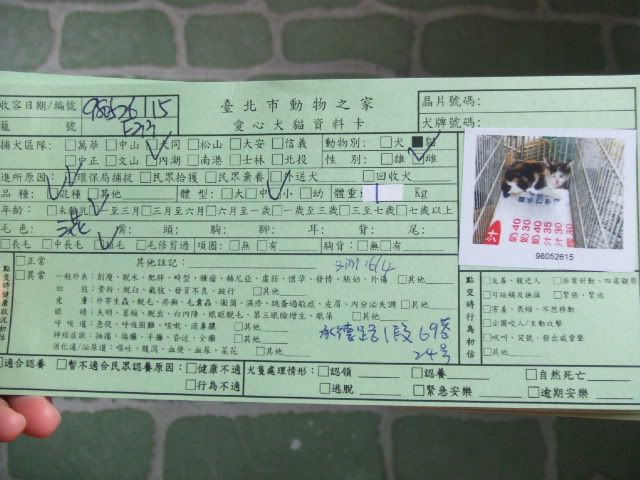 臺北市動物之家
愛心犬貓資料卡
收容日期/編號 980526 115
籠 號
晶片號碼:
犬牌號碼:
捕犬區隊: □萬華 □中山 □大同 □松山 □大安 □信義
□中正 □文山 □內湖 □南港 □士林 □北投
動物別: □犬 ■貓
性 別: □雄 □雌
進所原因: □環保局捕捉 □民眾拾獲 □民眾棄養 □外送犬 □回收犬
品 種: □混種 □其他
體 型: □大 □中 □小 □幼
體重: 1 Kg
年齡: □未離乳 □至三月 □三月至六月 □六月至一歲 □一歲至三歲 □三至七歲 □七歲以上
毛 色: 三花 頭: 胸: 腳: 耳: 背: 尾:
□長毛 □中長毛 □短毛 □毛修剪過 項圈: □無 □有 胸背: □無 □有
汁
奶 奶 汁 汁 奶 罐
40 40 35 30 30
98052615
點交時健康狀況初估
□正常
□異常
其他註記:
一般外表: 削瘦、脫水、肥胖、畸型、腫瘤、赫尼亞、虛弱、懷孕、發情、脹奶、外傷 □其他
四 肢: 骨折、脫臼、截肢、發育不良、跛行 □其他
皮 膚: 外寄生蟲、脫毛、疥癬、毛囊蟲、術菌、濕疹、跳蚤過敏症、皮屑、內分泌失調 □其他
眼 睛: 失明、萎縮、脫出、白內障、眼眶脫毛、第三眼瞼增生、眼屎 □其他
呼 吸 道: 急促、呼吸困難、咳嗽、流鼻膿 □其他
神經症狀: 抽搐、偏癱、半癱、昏迷、全癱 □其他
消化道/泌尿道: 嘔吐、腹瀉、血便、血尿、菜花 □其他
承德路1段69巷
24号
點交時行為初估
□友善、親近人 □非常好動、四處觀察
□可碰觸及撫摸 □緊張、緊迫
□害羞、畏縮、不想移動
□企圖咬人/主動攻擊
□吠叫、哭號、發出威脅聲
□其他
□適合認養 □暫不適合民眾認養原因: □健康不適
□行為不適
犬隻處理情形: □認領 □認養 □自然死亡
□逃脫 □緊急安樂 □逾期安樂